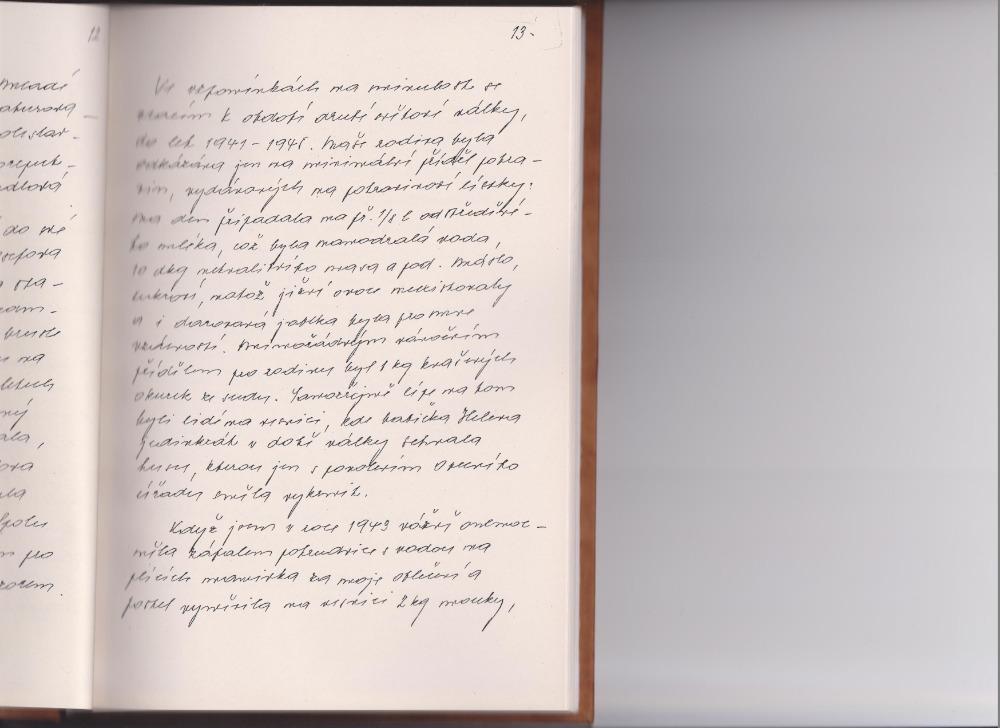 12
mladí
do mé
na
pro
13.
Ve vzpomínkách na minulost se
vracím k období druhé světové války,
do let 1941 - 1945. Naše rodina byla
odkázána jen na minimální příděl potra-
vin, vydávaných na potravinové lístky:
na den připadala na př. 1/8 l odstředěné-
ho mléka, což byla namodralá voda,
10 dkg nekvalitního masa a pod. Máslo,
cukroví, natož jižní ovoce neexistovaly
a i darovaná jablka byla pro mne
vzácností. Mimořádným vánočním
přídělem pro rodinu byl 1 kg kvašených
okurek ze sudu. Samozřejmě lépe na tom
byli lidé na vesnici, kde babička Helena
v době války schvala
husu, kterou jen s povolením
úřadu směla vykrmit.
Když jsem v roce 1943 vážně onemoc-
něla zápalem pohrudnice s vodou na
plicích maminka za moje oblečení a
postel vyměnila na vesnici 2 kg mouky,